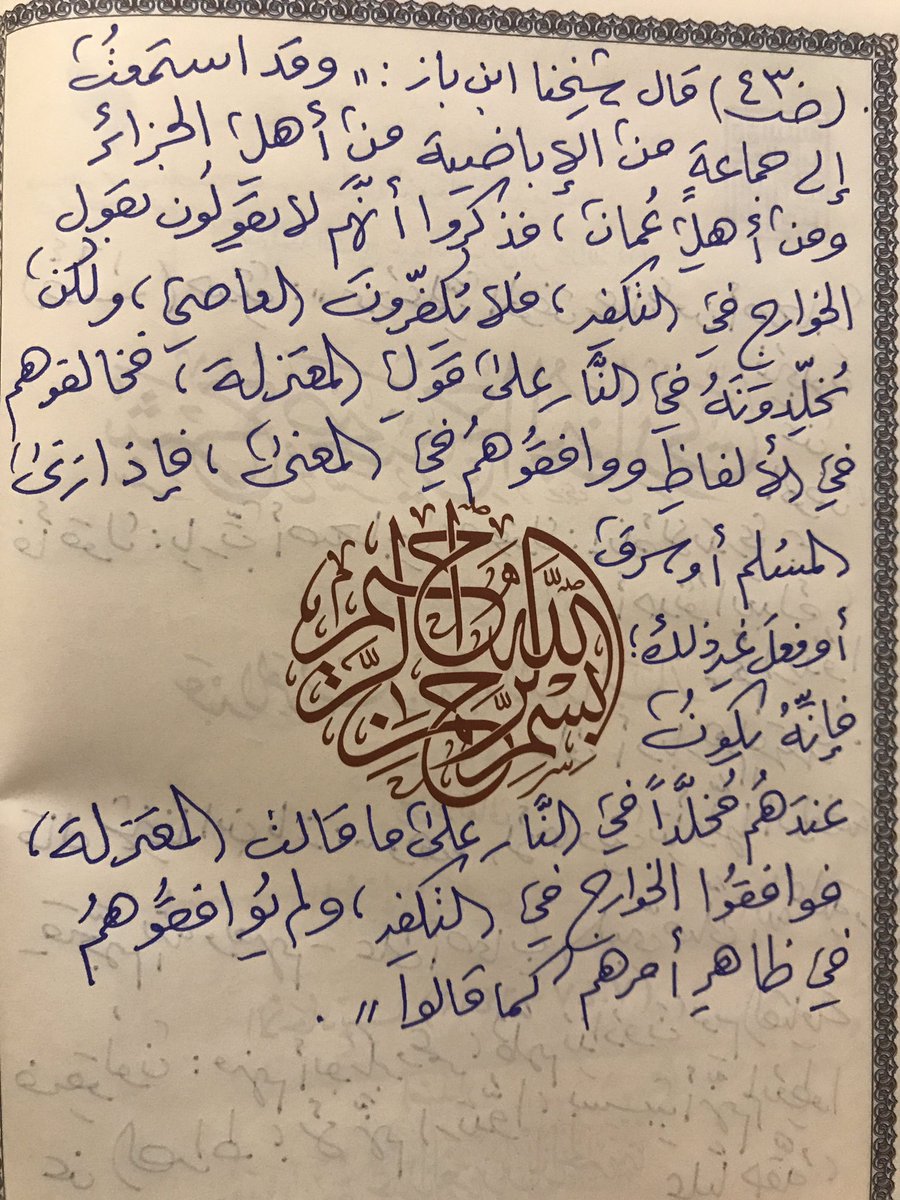 (ض٤٣) قال شيخنا ابن باز: " وقد استمعتُ
إلى جماعةٍ من الإباضية من أهلِ الجزائر
ومن أهلِ عُمان، فذكروا أنَّهم لا يقولُون بقول
الخوارج في التكفير، فلا يُكفِّرونَ العاصي، ولكن
يُخلِّدونَهُ في النَّار على قولِ المعتزلة، فخالفوهم
في الألفاظِ ووافقوهُم في المعنى، فإذا زنى
المسلم أو سرق
أو فعل غير ذلك؛
فإنَّهُ يكونُ
بسم الله الرحمن الرحيم
عندهُم مُخلَّداً في النَّار على ما قالت المعتزلة،
فوافقُوا الخوارج في التكفير، ولم يُوافقُوهمُ
في ظاهرِ أمرهم كما قالوا".